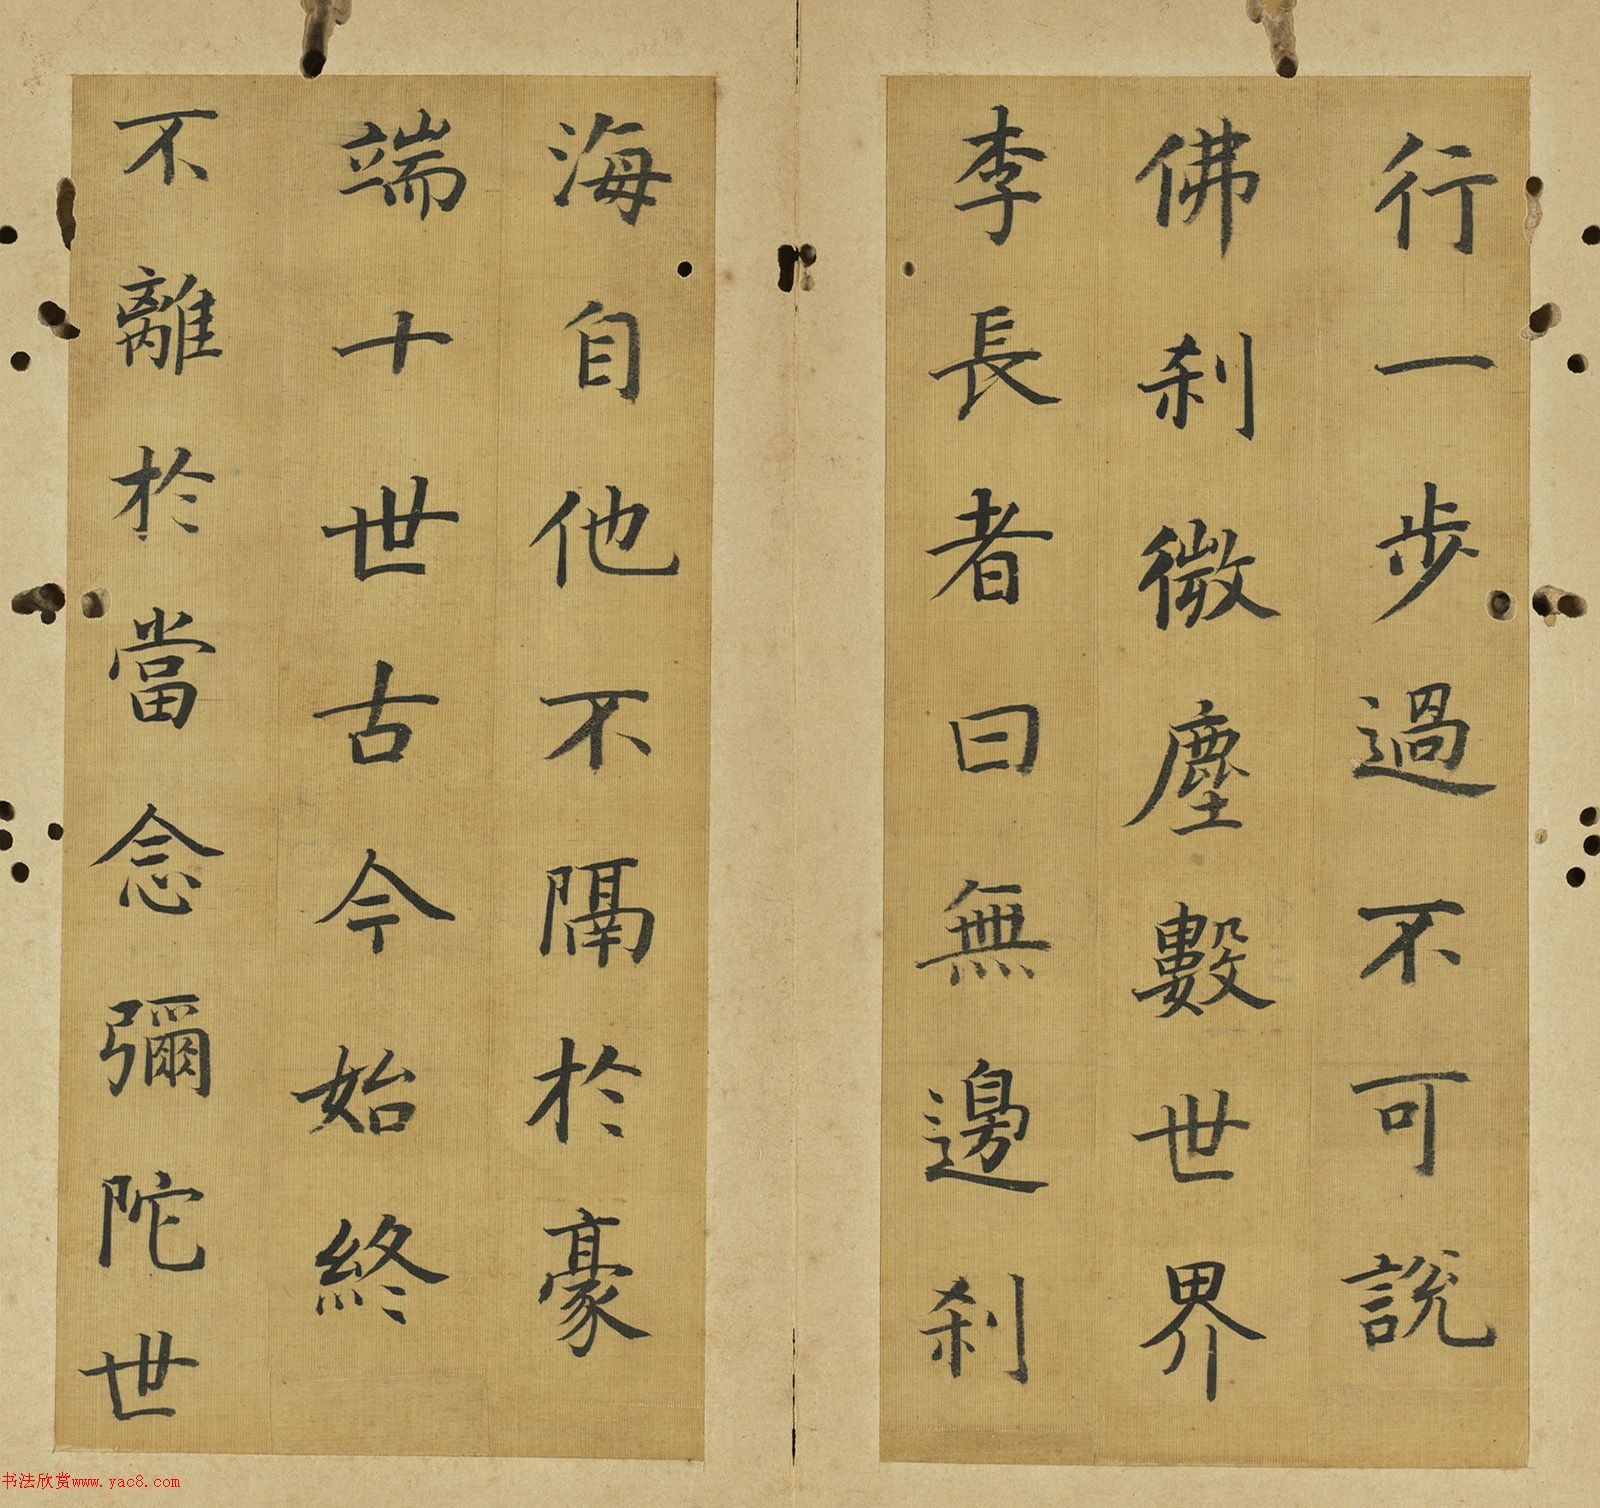 行一步過不可說
佛刹微塵數世界
李長者曰無邊刹
海自他不隔於豪
端十世古今始終
不離於當念彌陀世
书法欣赏www.yac8.com